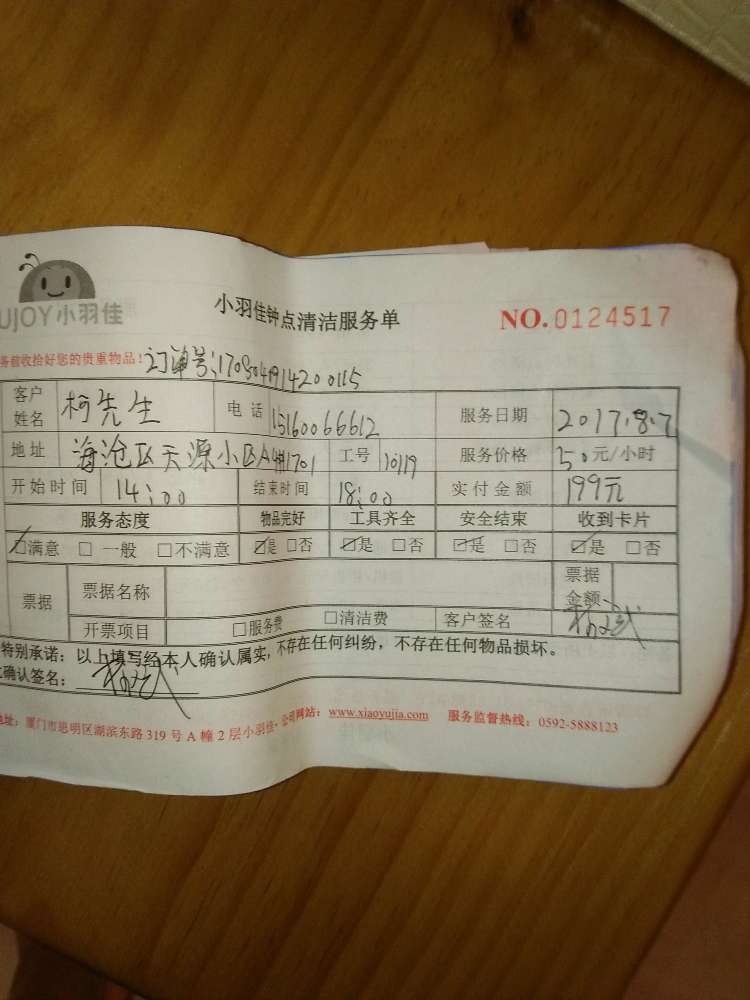 UJOY小羽佳
小羽佳钟点清洁服务单
NO.0124517
务前收拾好您的贵重物品!
订单号:
客户姓名 柯先生 电话 15160066612 服务日期 2017.8.7
地址 海沧区天源小区A 1701 工号 10119 服务价格 50元/小时
开始时间 14:00 结束时间 18:00 实付金额 199元
服务态度 物品完好 工具齐全 安全结束 收到卡片
☑满意 □一般 □不满意 ☑是 □否 ☑是 □否 ☑是 □否 ☑是 □否
票据 票据名称 票据金额
开票项目 □服务费 □清洁费 客户签名
特别承诺:以上填写经本人确认属实,不存在任何纠纷,不存在任何物品损坏。
确认签名:
地址:厦门市思明区湖滨东路319号A幢2层小羽佳·公司网站:www.xiaoyujia.com 服务监督热线:0592-5888123